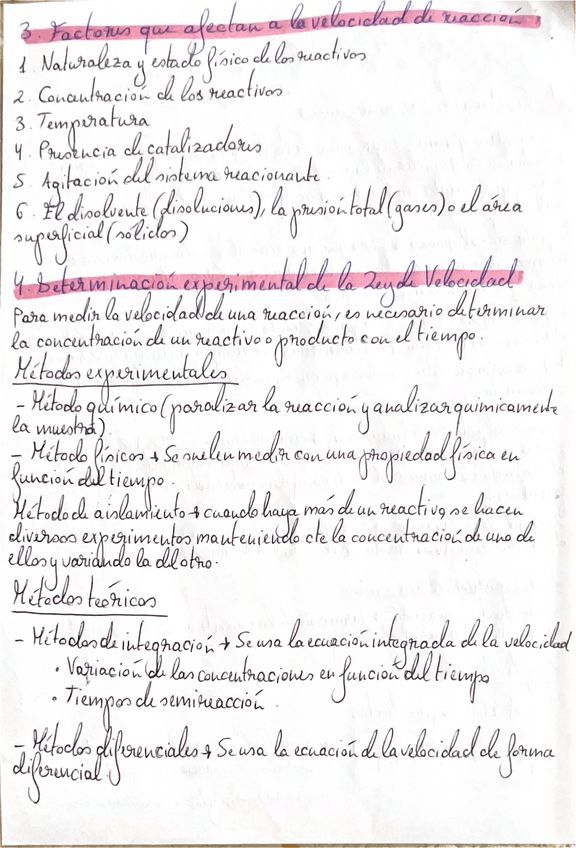 3. Factores que afectan a la velocidad de reacción
1. Naturaleza y estado físico de los reactivos
2. Concentración de los reactivos
3. Temperatura
4. Presencia de catalizadores
5. Agitación del sistema reacionante.
6. El disolvente (disoluciones), la presión total (gases) o el area
superficial (sólidos)
4. Determinación experimental de la Ley de Velocidad
Para medir la velocidad de una reacción, es necesario determinar
la concentración de un reactivo o producto con el tiempo.
Métodos experimentales
- Método químico (paralizar la reacción y analizar quimicamente
la muestra).
- Método físicos → Se suelen medir con una propiedad física en
función del tiempo.
Método de aislamiento → cuando haya más de un reactivo, se hacen
diversos experimentos manteniendo cte la concentración de uno de
ellos y variando la del otro.
Métodos teóricos
- Métodos de integración → Se usa la ecuación integrada de la velocidad
• Variación de las concentraciones en función del tiempo
• Tiempos de semireacción.
- Métodos diferenciales → Se usa la ecuación de la velocidad de forma
diferencial.